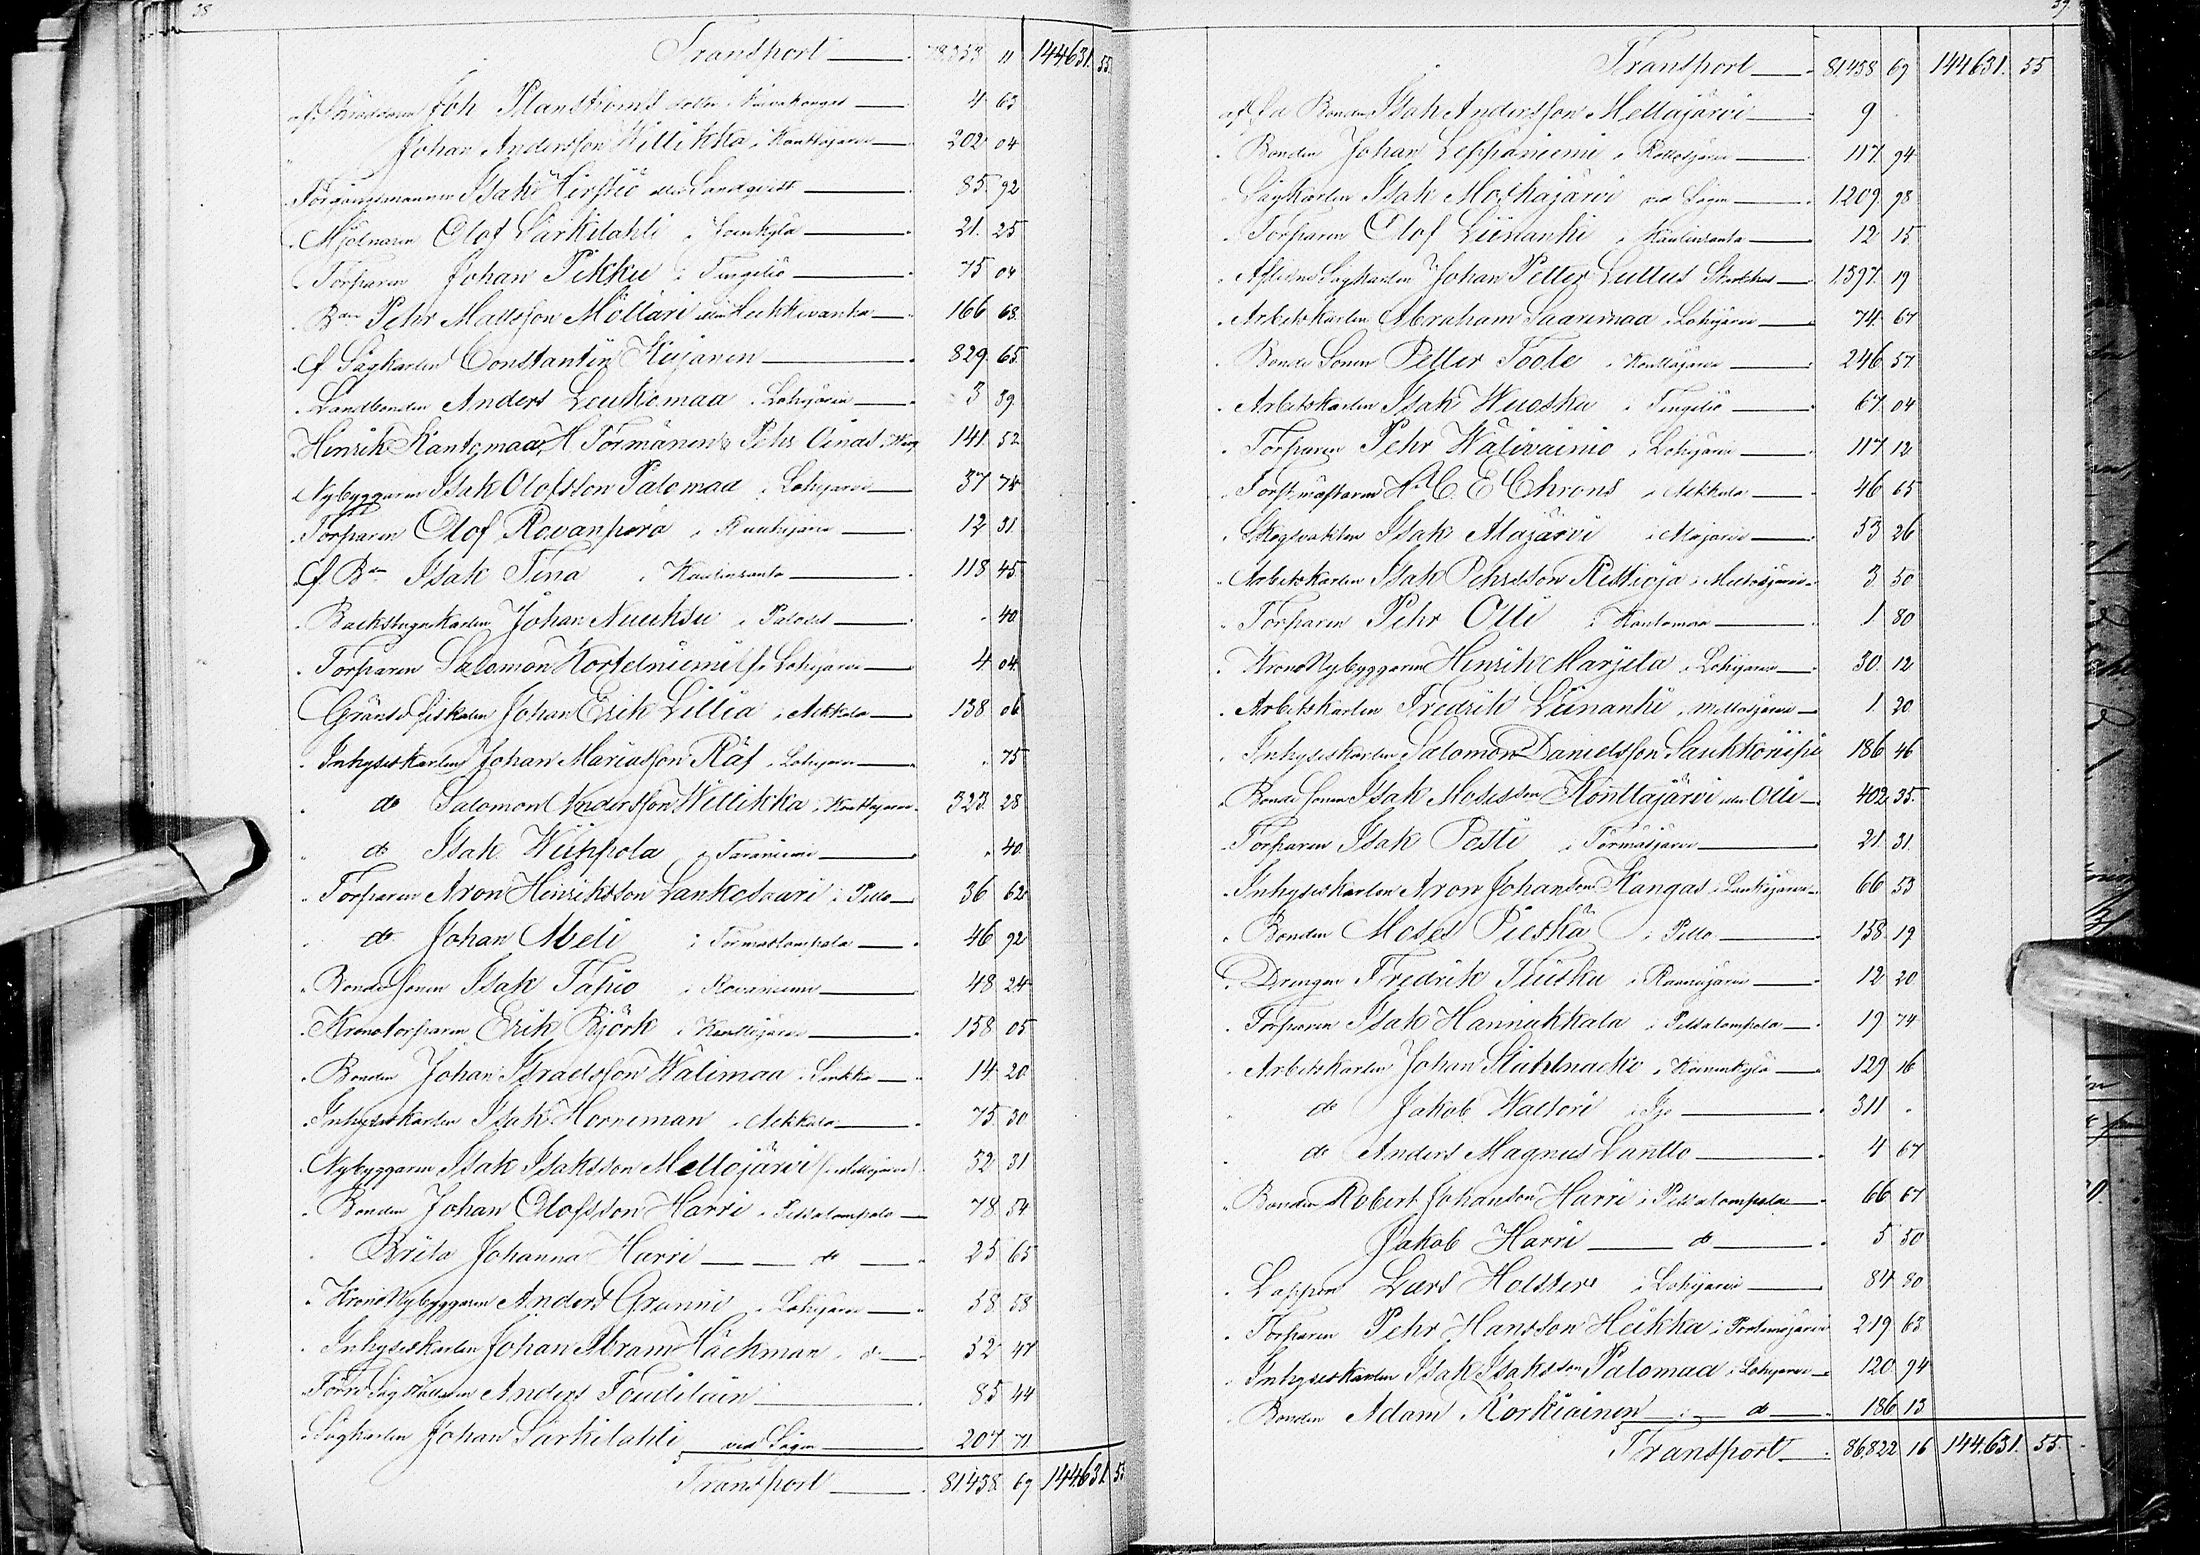 38
Transport 78353 11 144631. 55.
af Skräddaren Joh Planströms 4 63
" Johan Andersson Willikka i Konttajärvi 202 04
" Förgångsmannen Isak Hirstiö eller Landqvist 85. 92
" Mjölnaren Olof Särkilahti i 21. 25
" Torparen Johan Pekku i Tengeliö 75 04
" Bdn Pehr Mattsson Möllari eller Heikkivanha 166 68
" f Sågkarlen Constantin Kujanen 829. 65
" Landbonden Anders Leukomaa i Lohijärvi 3 39
" Hinrik Kantomaa, H Törmänen & Pehr Oinas 141. 52
" Nybyggaren Isak Olofsson Palomaa i Lohijärvi 37 74
" Torparen Olof Rovanperä i 12 31
" f Bdn Isak Tena i Kaulinranta 118 45
" Backstugukarlen Johan Nuuksu i " 40
" Torparen Salomon Kortelniemi fr Lohijärvi 4 04
" Gränse fiskalen Johan Erik Lillia i Aekkula 138 06
" Inhyseskarlen Johan Mariasson Räf i Lohijärvi " 75
" do Salomon Andersson Willikka i Konttajärvi 323 28
" do Isak Wiippola i Taraniemi " 40
" Torparen Aron Henriksson Lankosaari i Pello 36 62
" do Johan Abeli i Törmäslompolo 46 92
" Bonde sonen Isak Tapio i Rovaniemi 48 24
" Kronotorparen Erik Björk i Konttajärvi 158 05
" Bonden Johan Israelsson Wälimaa i 14 20
" Inhyseskarlen Isak Horneman i Aekkula 75 30
" Nybyggaren Isak Isaksson Mellajärvi (i Mellajärvi) 52 31
" Bonden Johan Olofsson Harri i Pessalompolo 78 54
" Brita Johanna Harri do 25 65
" Krono Nybyggaren Anders Granni i Lohijärvi 58 58
" Inhyseskarlen Johan Abram Häckman do 52 47
" Förre Anders Toudilain 85 44
" Sågkarlen Johan Särkilahti vid Sågen 207 71
Transport 81458. 69 144631. 55
39.
Transport 81458 69 144631. 55
af fd Bonden Isak Andersson Mellajärvi 9 "
" Bonden Johan Leppäniemi i 117 94
" Sågkarlen Isak Moskajärvi vid Sågen 1209. 98
" Torparen Olof Liinanki i Kaulinranta 12 15
" Aflidne Sågkarlen Johan Petter Lullus Sterbhus 1597 19
" Arbetskarlen Abraham Saarimaa i Lohijärvi 74 67
" Bonde Sonen Petter Toolo i Konttajärvi 246 57
" Arbetskarlen Isak Wuosku i Tengeliö 67 04
" Torparen Pehr Wälivainio i Lohijärvi 117 12
" Forstmästaren Hr C. E Chrons i Aekkula 46 65
" Skogvakten Isak Majärvi i Majärvi 53 26
" Arbetskarlen Isak Pehrsson Ristioja i Meltosjärvi 3 50
" Torparen Pehr Olli i Kantomaa 1 80
" Krono Nybyggaren Hinrik Marjeta i Lohijärvi 30. 12
" Arbetskarlen Fredrik Liinanki i Mellajärvi 1 20
" Inhyseskarlen Salomon Danielsson Saukkoriipi 186 46
" Bonde sonen Isak Mosesson Konttajärvi eller Olli 402 35.
" Torparen Isak Posti i Törmäsjärvi 21 31
" Inhyseskarlen Aron Johansson Kangas i 66 53
" Bonden Moses Pieskä i Pello 158 19
" Drengen Fredrik Tiuska i Raanujärvi 12 20
" Torparen Isak Hannukkala i Pessalompolo 19 74
" Arbetskarlen Johan Stålnacke i 129 16
" do Jakob Waltari i Ijo 311 "
" do Anders Magnus Lantto 4 67
" Bonden Robert Johansson Harri i Pessalompolo 66 67
Jakob Harri do 5 50
" Lappen Lars Holster i Lohijärvi 84 80
" Torparen Pehr Hansson Heikka i Portimojärvi 219 63
" Inhyseskarlen Isak Isaksson Palomaa i Lohijärvi 120 94
" Bonden Adam Korkiainen do 186 13
Transport 86822 16 144.631. 55.